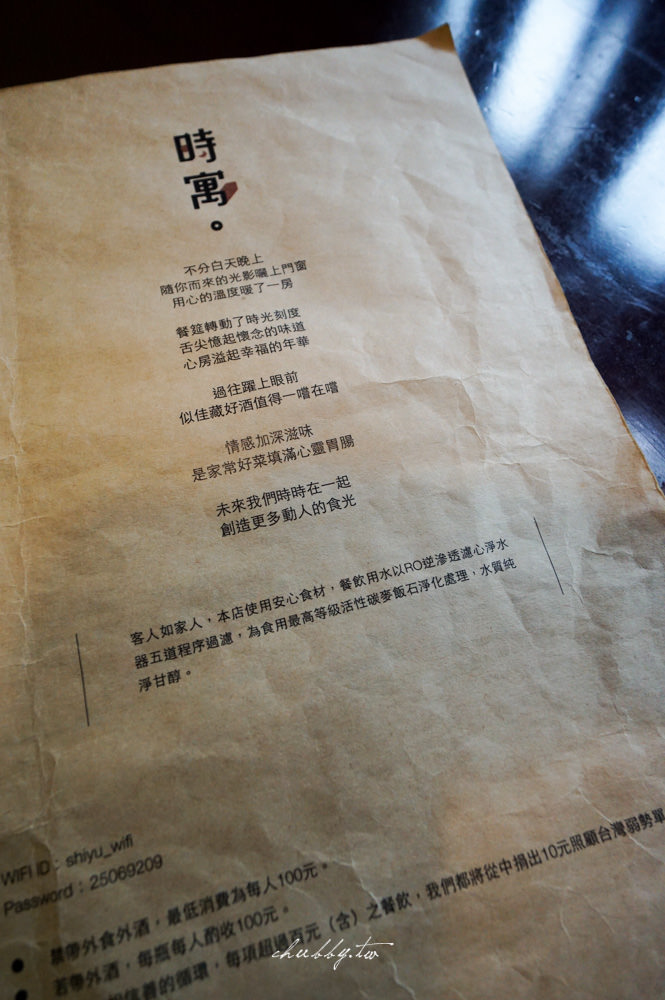 時
寓。
不分白天晚上
隨你而來的光影曬上門窗
用心的溫度暖了一房
餐筵轉動了時光刻度
舌尖憶起懷念的味道
心房溢起幸福的年華
過往躍上眼前
似佳藏好酒值得一嚐在嚐
情感加深滋味
是家常好菜填滿心靈胃腸
未來我們時時在一起
創造更多動人的食光
客人如家人，本店使用安心食材，餐飲用水以RO逆滲透濾心淨水
器五道程序過濾，為食用最高等級活性碳麥飯石淨化處理，水質純
淨甘醇。
WIFI ID：shiyu_wifi
Password：25069209
● 禁帶外食外酒，最低消費為每人100元。
● 若帶外酒，每瓶每人酌收100元。
相信善的循環，每項超過百元（含）之餐飲，我們都將從中捐出10元照顧台灣弱勢單
chubby.tw